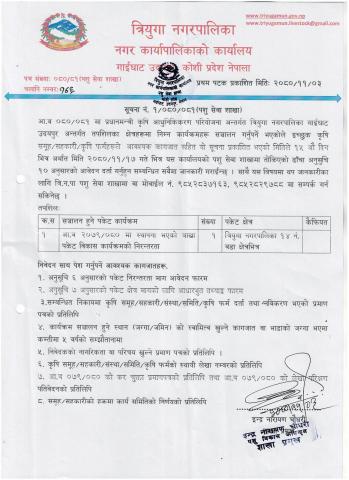 www.triyugamun.gov.np
www.triyugamun.livestock@gmail.com
त्रियुगा नगरपालिका
नगर कार्यपालिकाको कार्यालय
गाईघाट उदयपुर, कोशी प्रदेश नेपाल
पत्र संख्या: ०८०/८१(पशु सेवा शाखा)
चलानि नम्बर:
प्रथम पटक प्रकाशित मिति: २०८०/११/०३
सूचना नं. १/०८०/०८१(पशु सेवा शाखा)
आ.ब ०८०/०८१ मा प्रधानमन्त्री कृषि आधुनिकिकरण परियोजना अन्तर्गत त्रियुगा नगरपालिका गाईघाट
उदयपुर अन्तर्गत तपशिलका क्षेत्रहरुमा निम्न कार्यक्रमहरु सञ्चालन गर्नुपर्ने भएकोले इच्छुक कृषि
समुह/सहकारी/कृषि फर्महरुले आवश्यक कागजात सहित यो सूचना प्रकाशित भएको मितिले १५ औं दिन
भित्र अर्थात मिति २०८०/११/१७ गते भित्र यस कार्यालयको पशु सेवा शाखामा तोकिएको ढाँचा अनुसुचि
१० अनुसारको आवेदन दर्ता गर्नुहुन सम्बन्धित सबैमा जानकारी गराईन्छ । साथै यस विषयमा थप जानकारीका
लागि त्रि.न.पा पशु सेवा शाखामा वा मोबाईल नं. ९८५२८३७१६३, ९८५२८२९७८८ मा सम्पर्क गर्न
सकिनेछ ।
तपशिल:
क.स सञ्चालन हुने पकेट कार्यक्रम संख्या पकेट क्षेत्र कैफियत
१ आ.ब २०७९/०८० मा स्थापना भएको बाख्रा १ त्रियुगा नगरपालिका १४ नं.
पकेट विकास कार्यक्रमको निरन्तरता वडा क्षेत्रभित्र
निवेदन साथ पेश गर्नुपर्ने आवश्यक कागजातहरु.
१. अनुसूचि ६ अनुसारको पकेट निरन्तरता माग आवेदन फारम
२. अनुसूचि ७ अनुसारको पकेट क्षेत्र मागको लागि आधारभुत तथ्याङ्क फारम
३.सम्बन्धित निकायमा कृषि समुह/सहकारी/संस्था/समिति/कृषि फर्म दर्ता तथा नविकरण भएको प्रमाण
पत्रको प्रतिलिपि
४. कार्यक्रम सञ्चालन हुने स्थान (जग्गा/जमिन) को स्वामित्व खुल्ने कागजात वा भाडाको जग्गा भएमा
कम्तीमा ५ वर्षको सम्झौतानामा
५. निवेदकको नागरिकता वा परिचय खुल्ने प्रमाण पत्रको प्रतिलिपि
६. कृषि समुह/सहकारी/संस्था/समिति/कृषि फर्मको स्थायी लेखा नम्बरको प्रतिलिपि
७. आ.ब ०७९/०८० को कर चुक्ता प्रमाणपत्रको प्रतिलिपि तथा आ.ब ०७९/०८० को लेखा परिक्षण
प्रतिवेदनको प्रतिलिपि
८. समुह/सहकारीको हकमा कार्य समितिको निर्णयको प्रतिलिपि
इन्द्र नारायण चौधरी
इन्द्र नारायण चौधरी
पशु विकास अधिकृत
शाखा प्रमुख